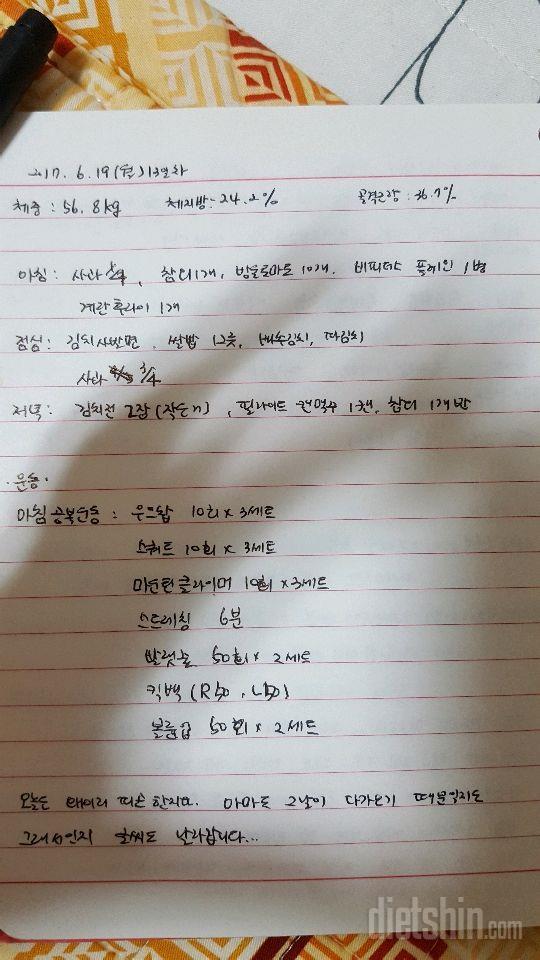 2017. 6. 19 (월) 13일차
체중 : 56.8kg 체지방 : 24.2% 골격근량 : 36.7%
아침 : 사과 , 참외 1개, 방울토마토 10개. 비피더스 플레인 1병
계란후라이 1개
점심 : 김치사발면 . 쌀밥 12숟, 배추김치,
사과 3/4
저녁 : 김치전 2장 (작은거) , 필라이트 캔맥주 1캔, 참외 1개반
·운동·
아침공복운동 : 우드찹 10회 x 3세트
스쿼트 10회 x 3세트
마운틴클라이머 10회 x 3세트
스트레칭 6분
발렛 50회 x 2세트
킥백 (R50 , L50)
볼륨업 50회 x 2세트
오늘은 왜이리 한지요. 아마도 그날이 다가오기 때문일지도
그래서인지 글씨도 날라갑니다...
dietshin.com